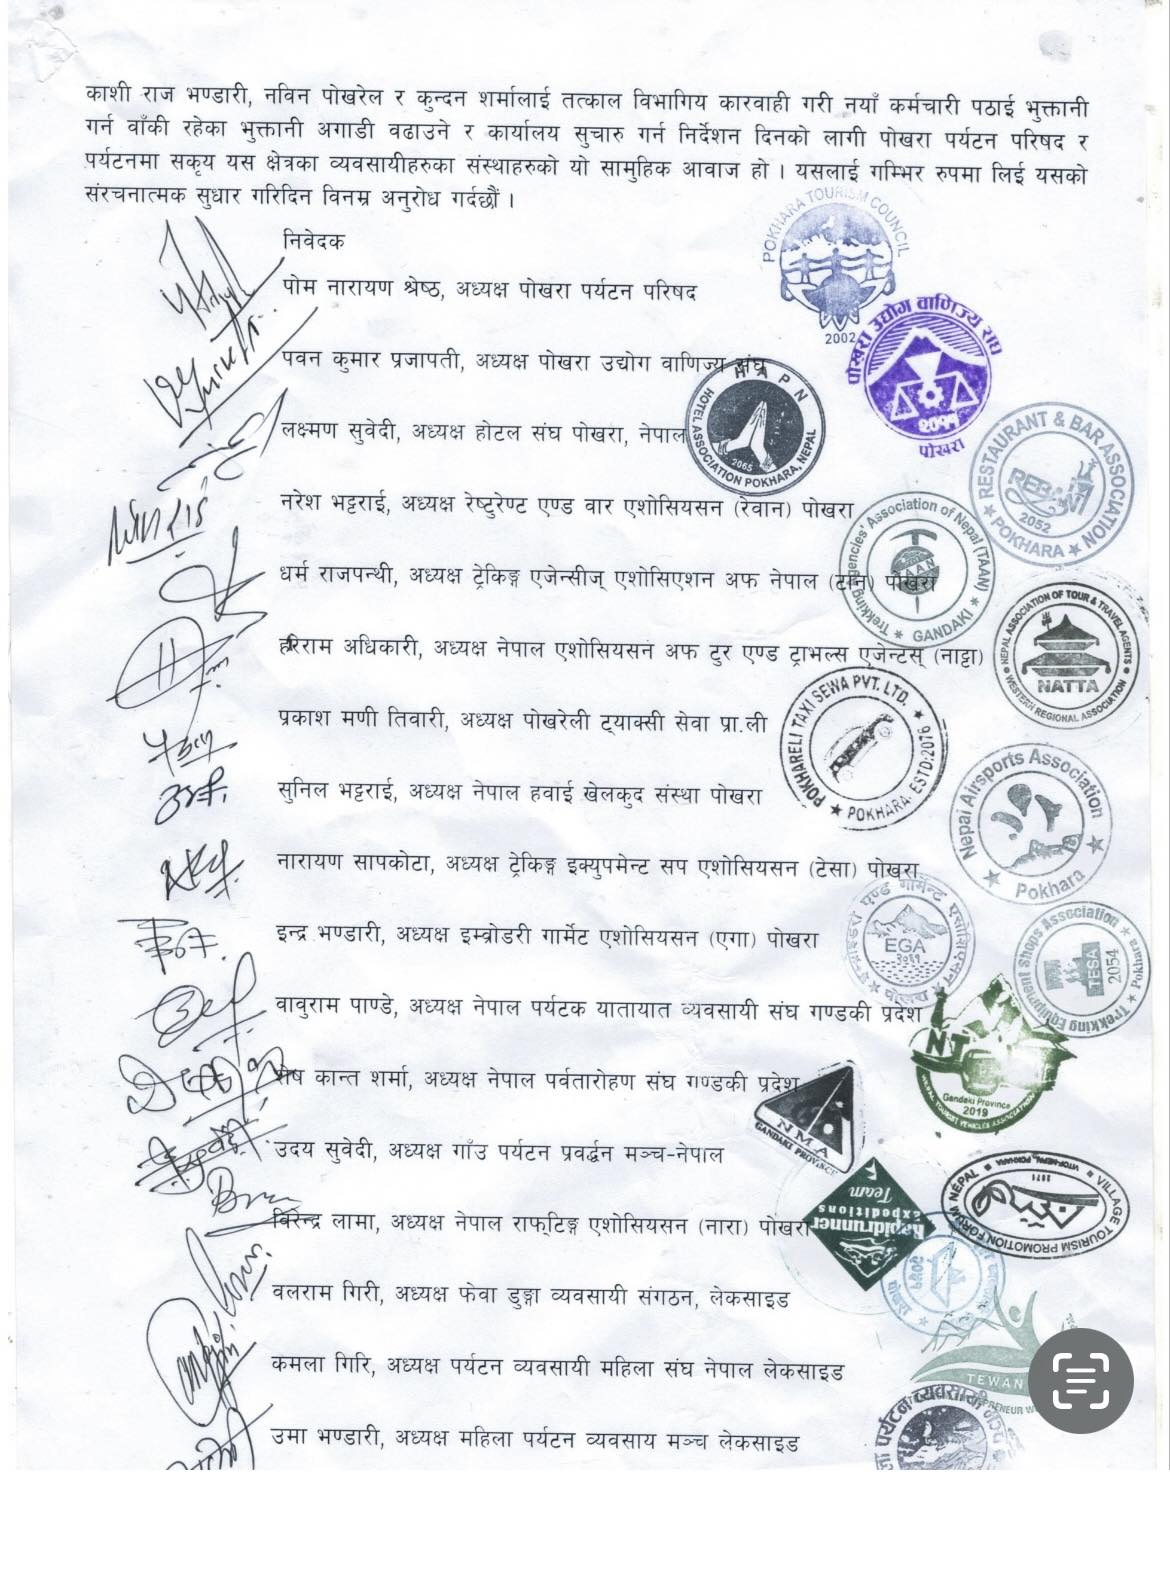 काशी राज भण्डारी, नविन पोखरेल र कुन्दन शर्मालाई तत्काल विभागिय कारवाही गरी नयाँ कर्मचारी पठाई भुक्तानी
गर्न वाँकी रहेका भुक्तानी अगाडी वढाउने र कार्यालय सुचारु गर्न निर्देशन दिनको लागी पोखरा पर्यटन परिषद र
पर्यटनमा सकृय यस क्षेत्रका व्यवसायीहरुका संस्थाहरुको यो सामुहिक आवाज हो । यसलाई गम्भिर रुपमा लिई यसको
संरचनात्मक सुधार गरिदिन विनम्र अनुरोध गर्दछौं ।
निवेदक
POKHARA TOURISM COUNCIL
2002
पोम नारायण श्रेष्ठ, अध्यक्ष पोखरा पर्यटन परिषद
पोखरा उद्योग वाणिज्य संघ
पोखरा
पवन कुमार प्रजापती, अध्यक्ष पोखरा उद्योग वाणिज्य संघ
HAPN
HOTEL ASSOCIATION POKHARA, NEPAL
2065
लक्ष्मण सुवेदी, अध्यक्ष होटल संघ पोखरा, नेपाल
RESTAURANT & BAR ASSOCIATION
REBAN
2052
POKHARA
नरेश भट्टराई, अध्यक्ष रेष्टुरेण्ट एण्ड वार एशोसियसन (रेवान) पोखरा
Trekking Agencies' Association of Nepal (TAAN)
TAAN
GANDAKI
धर्म राजपन्थी, अध्यक्ष ट्रेकिङ्ग एजेन्सीज् एशोसिएशन अफ नेपाल (टान) पोखरा
NEPAL ASSOCIATION OF TOUR & TRAVEL AGENTS
NATTA
WESTERN REGIONAL ASSOCIATION
हरिराम अधिकारी, अध्यक्ष नेपाल एशोसियसन अफ टुर एण्ड ट्राभल्स एजेन्टस् (नाट्टा)
POKHARELI TAXI SEWA PVT. LTD.
POKHARA-ESTD:2076
प्रकाश मणी तिवारी, अध्यक्ष पोखरेली ट्याक्सी सेवा प्रा.ली
Nepal Airsports Association
Pokhara
सुनिल भट्टराई, अध्यक्ष नेपाल हवाई खेलकुद संस्था पोखरा
नारायण सापकोटा, अध्यक्ष ट्रेकिङ्ग इक्युपमेन्ट सप एशोसियसन (टेसा) पोखरा
EGA
Trekking Equipment Shops Association
TESA
2054
Pokhara
इन्द्र भण्डारी, अध्यक्ष इम्व्रोडरी गार्मेट एशोसियसन (एगा) पोखरा
वावुराम पाण्डे, अध्यक्ष नेपाल पर्यटक यातायात व्यवसायी संघ गण्डकी प्रदेश
Gandaki Province
2019
शेष कान्त शर्मा, अध्यक्ष नेपाल पर्वतारोहण संघ गण्डकी प्रदेश
NMA
GANDAKI PROVINCE
उदय सुवेदी, अध्यक्ष गाँउ पर्यटन प्रवर्द्धन मञ्च-नेपाल
VILLAGE TOURISM PROMOTION FORUM NEPAL
Rapidrunner
expeditions
Team
विरेन्द्र लामा, अध्यक्ष नेपाल राफ्टिङ्ग एशोसियसन (नारा) पोखरा
वलराम गिरी, अध्यक्ष फेवा डुङ्गा व्यवसायी संगठन, लेकसाइड
कमला गिरि, अध्यक्ष पर्यटन व्यवसायी महिला संघ नेपाल लेकसाइड
TEWAN
उमा भण्डारी, अध्यक्ष महिला पर्यटन व्यवसाय मञ्च लेकसाइड